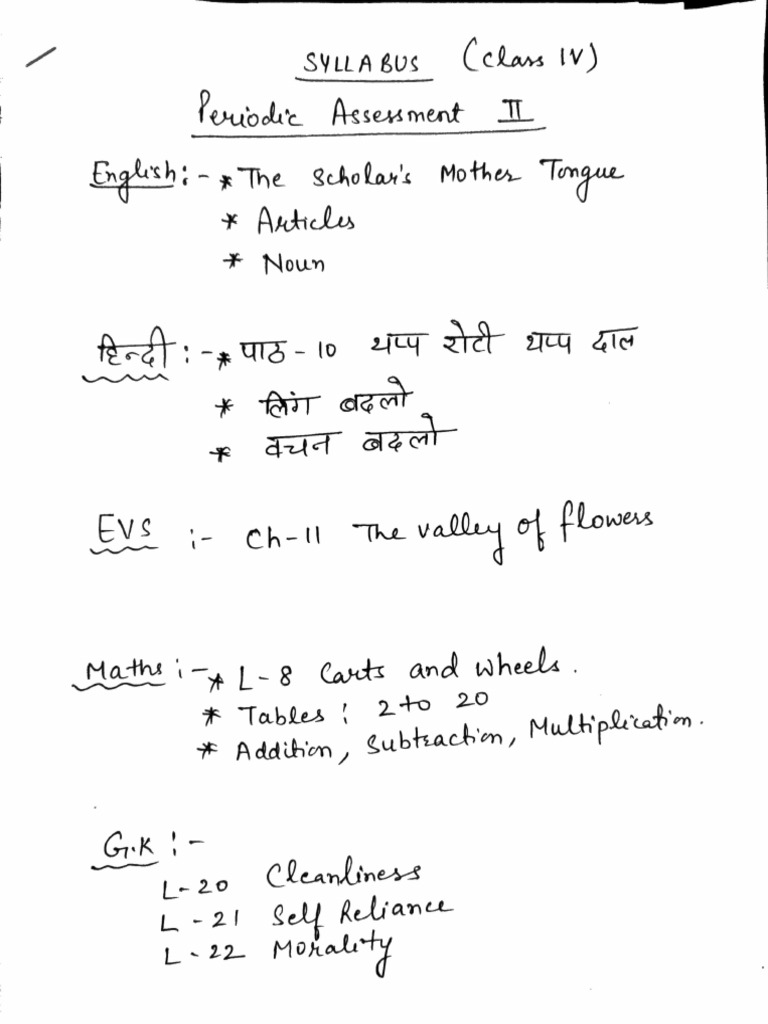 SYLLABUS (Class IV)
Periodic Assessment II
English:- * The Scholar's Mother Tongue
* Articles
* Noun
हिन्दी :- * पाठ - 10 थप्प रोटी थप्प दाल
* लिंग बदलो
* वचन बदलो
EVS :- Ch-11 The valley of flowers
Maths :- * L-8 Carts and wheels.
* Tables : 2 to 20
* Addition, Subtraction, Multiplication.
G.K :-
L-20 Cleanliness
L-21 Self Reliance
L-22 Morality